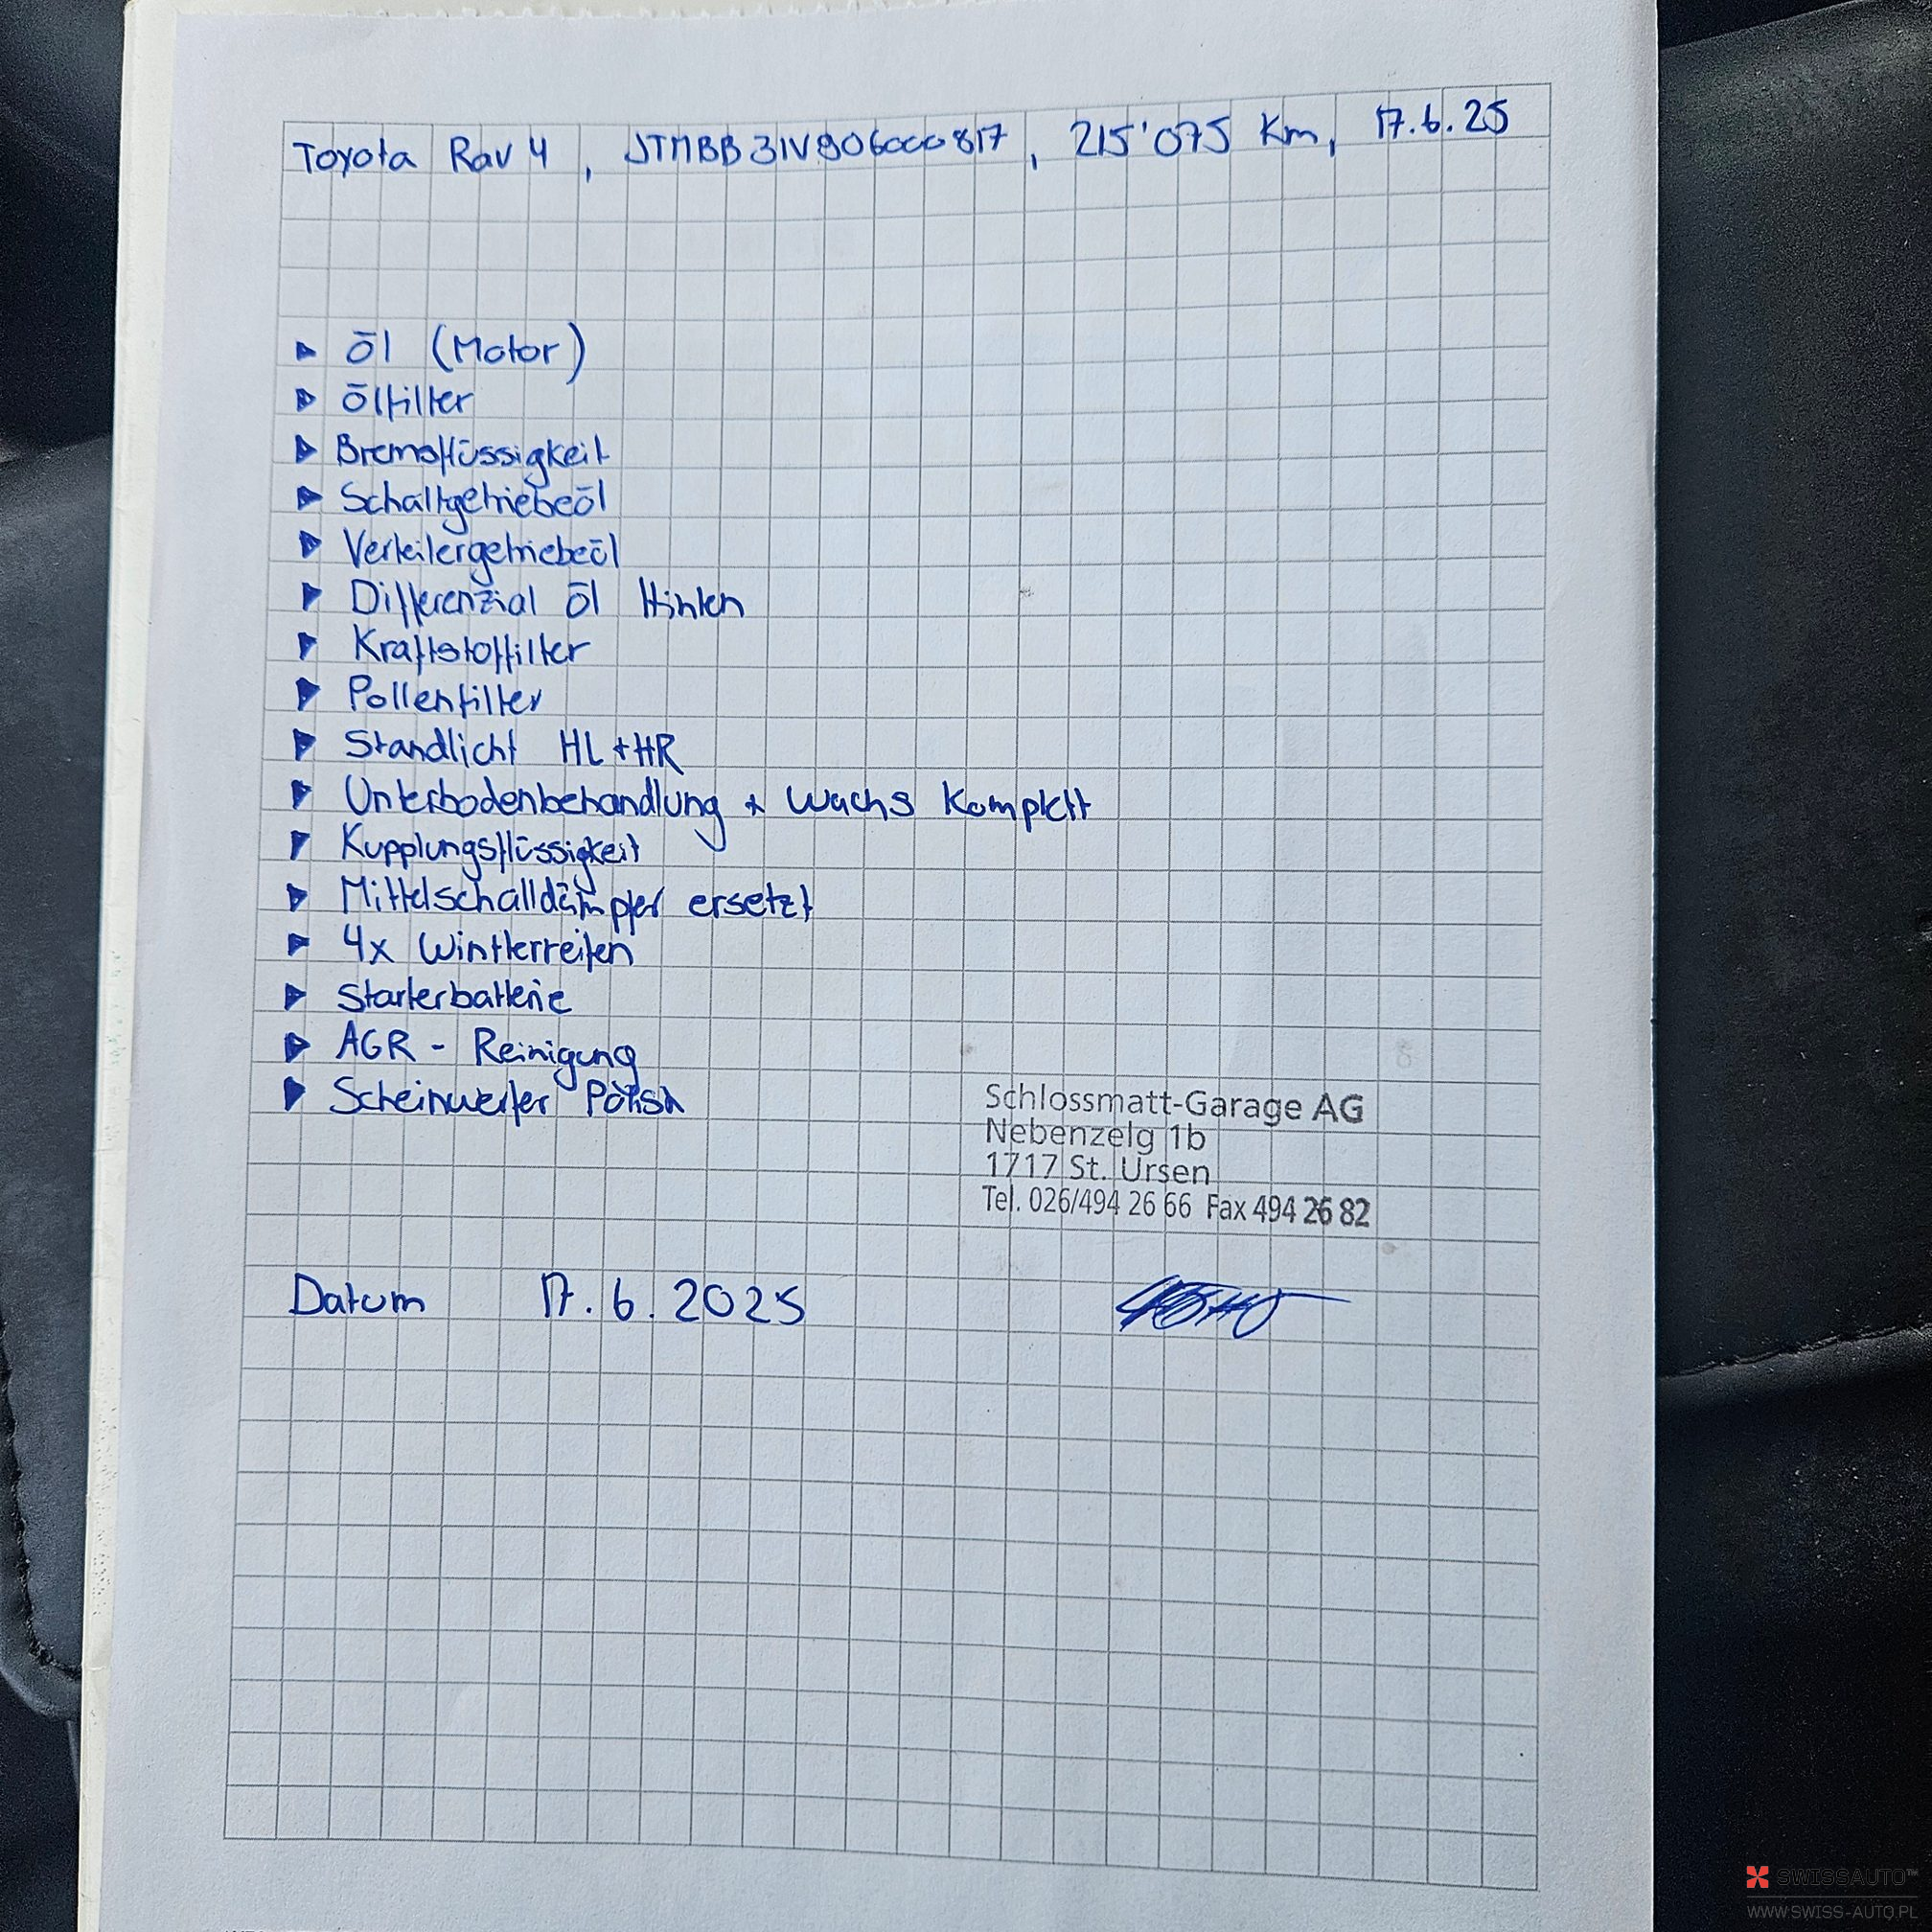 Toyota Rav 4, JTMBB31V906000817, 215'075 Km, 17.6.25
Öl (Motor)
Ölfilter
Bremsflüssigkeit
Schaltgetriebeöl
Verteilergetriebeöl
Differenzial öl Hinten
Kraftstoffilter
Pollenfilter
Standlicht HL + HR
Unterbodenbehandlung + Wachs Komplett
Kupplungsflüssigkeit
Mittelschalldämpfer ersetzt
4x Winterreifen
Starterbatterie
AGR - Reinigung
Scheinwerfer Polish
Schlossmatt-Garage AG
Nebenzelg 1b
1717 St. Ursen
Tel. 026/494 26 66 Fax 494 26 82
Datum 17.6.2025
SWISSAUTO™
WWW.SWISS-AUTO.PL